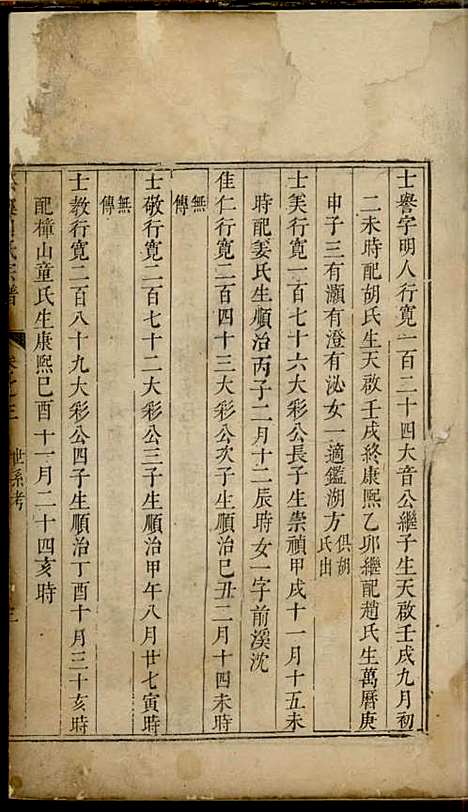 士譽字明人行寛一百二十四大音公繼子生天啟壬戌九月初
二未時配胡氏生天啟壬戌終康熙乙卯繼配趙氏生萬曆庚
申子三有灝有澄有泌女一適鑑湖方
俱胡
氏出
士美行寛一百七十六大彩公長子生崇禎甲戌十一月十五未
時配姜氏生順治丙子二月十二辰時女一字前溪沈
佳仁行寛二百四十三大彩公次子生順治己丑二月十四未時
無
傳
士敬行寛二百七十二大彩公三子生順治甲午八月廿七寅時
無
傳
士教行寛二百八十九大彩公四子生順治丁酉十月三十亥時
配樟山童氏生康熙己酉十一月二十四亥時
氏宗譜
卷之三
世系考